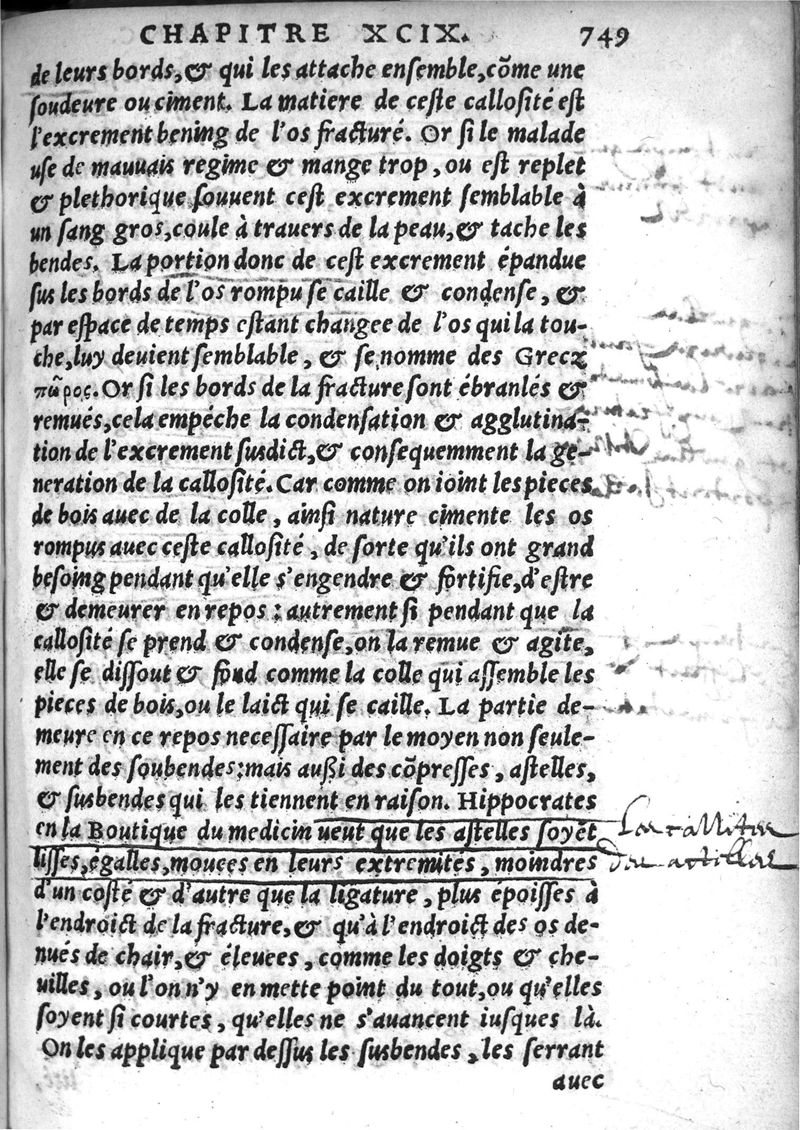 CHAPITRE XCIX. 749
de leurs bords, & qui les attache ensemble, cõme une
soudeure ou ciment. La matiere de ceste callosité est
l'excrement bening de l'os fracturé. Or si le malade
use de mauuais regime & mange trop, ou est replet
& plethorique, souuent cest excrement semblable à
un sang gros, coule à trauers de la peau, & tache les
bendes. La portion donc de cest excrement épandue
sus les bords de l'os rompu se caille & condense, &
par espace de temps estant changee de l'os qui la tou-
che, luy deuient semblable, & se nomme des Grecz
πῶρος. Or si les bords de la fracture sont ébranlés &
remués, cela empéche la condensation & agglutina-
tion de l'excrement susdict, & consequemment la ge-
neration de la callosité. Car comme on ioint les pieces
de bois auec de la colle, ainsi nature cimente les os
rompus auec ceste callosité, de sorte qu'ils ont grand
besoing pendant qu'elle s'engendre & fortifie, d'estre
& demeurer en repos : autrement si pendant que la
callosité se prend & condense, on la remue & agite,
elle se dissout & fond comme la colle qui assemble les
pieces de bois, ou le laict qui se caille. La partie de-
meure en ce repos necessaire par le moyen non seule-
ment des soubendes: mais aussi des cõpresses, astelles,
& susbendes qui les tiennent en raison. Hippocrates
en la Boutique du medicin ueut que les astelles soyẽt
lisses, égalles, mouces en leurs extremités, moindres
d'un costé & d'autre que la ligature, plus époisses à
l'endroict de la fracture, & qu'à l'endroict des os de-
nués de chair, & éleuees, comme les doigts & che-
uilles, ou l'on n'y en mette point du tout, ou qu'elles
soyent si courtes, qu'elles ne s'auancent iusques là.
On les applique par dessus les susbendes, les serrant
auec